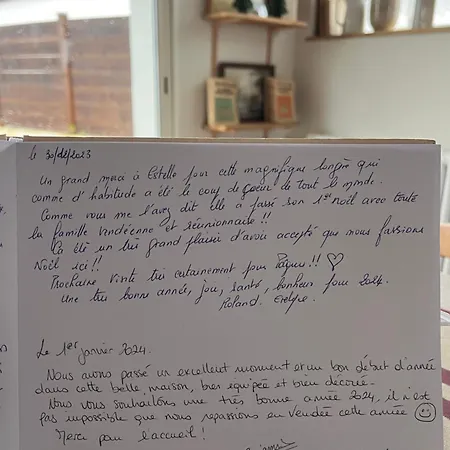 Le 30/12/2023
Un grand merci à Estelle pour cette magnifique longère qui
comme d'habitude a été le coup de coeur de tout le monde.
Comme vous me l'avez dit elle a passé son 1er noël avec toute
la famille vendéenne et réunionnaise !!
Ça été un très grand plaisir d'avoir accepté que nous fassions
Noël ici !!
Prochaine visite très certainement pour Pâques !! ♡
Une très bonne année, joie, santé, bonheur pour 2024.
Roland.
Le 1er janvier 2024.
Nous avons passé un excellent moment et un bon début d'année
dans cette belle maison, bien équipée et bien décorée.
Nous vous souhaitons une très bonne année 2024, il n'est
pas impossible que nous repassions en Vendée cette année ☺
Merci pour l'accueil !